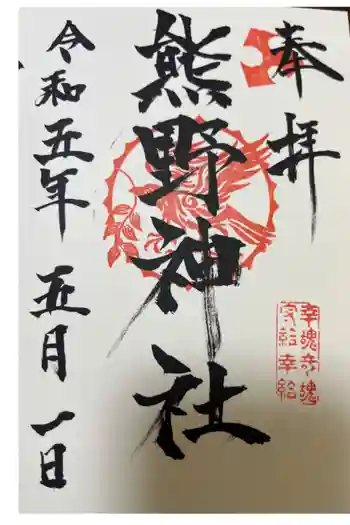 奉拝
熊野神社
令和五年 五月 一日
幸魂奇魂
守給幸給